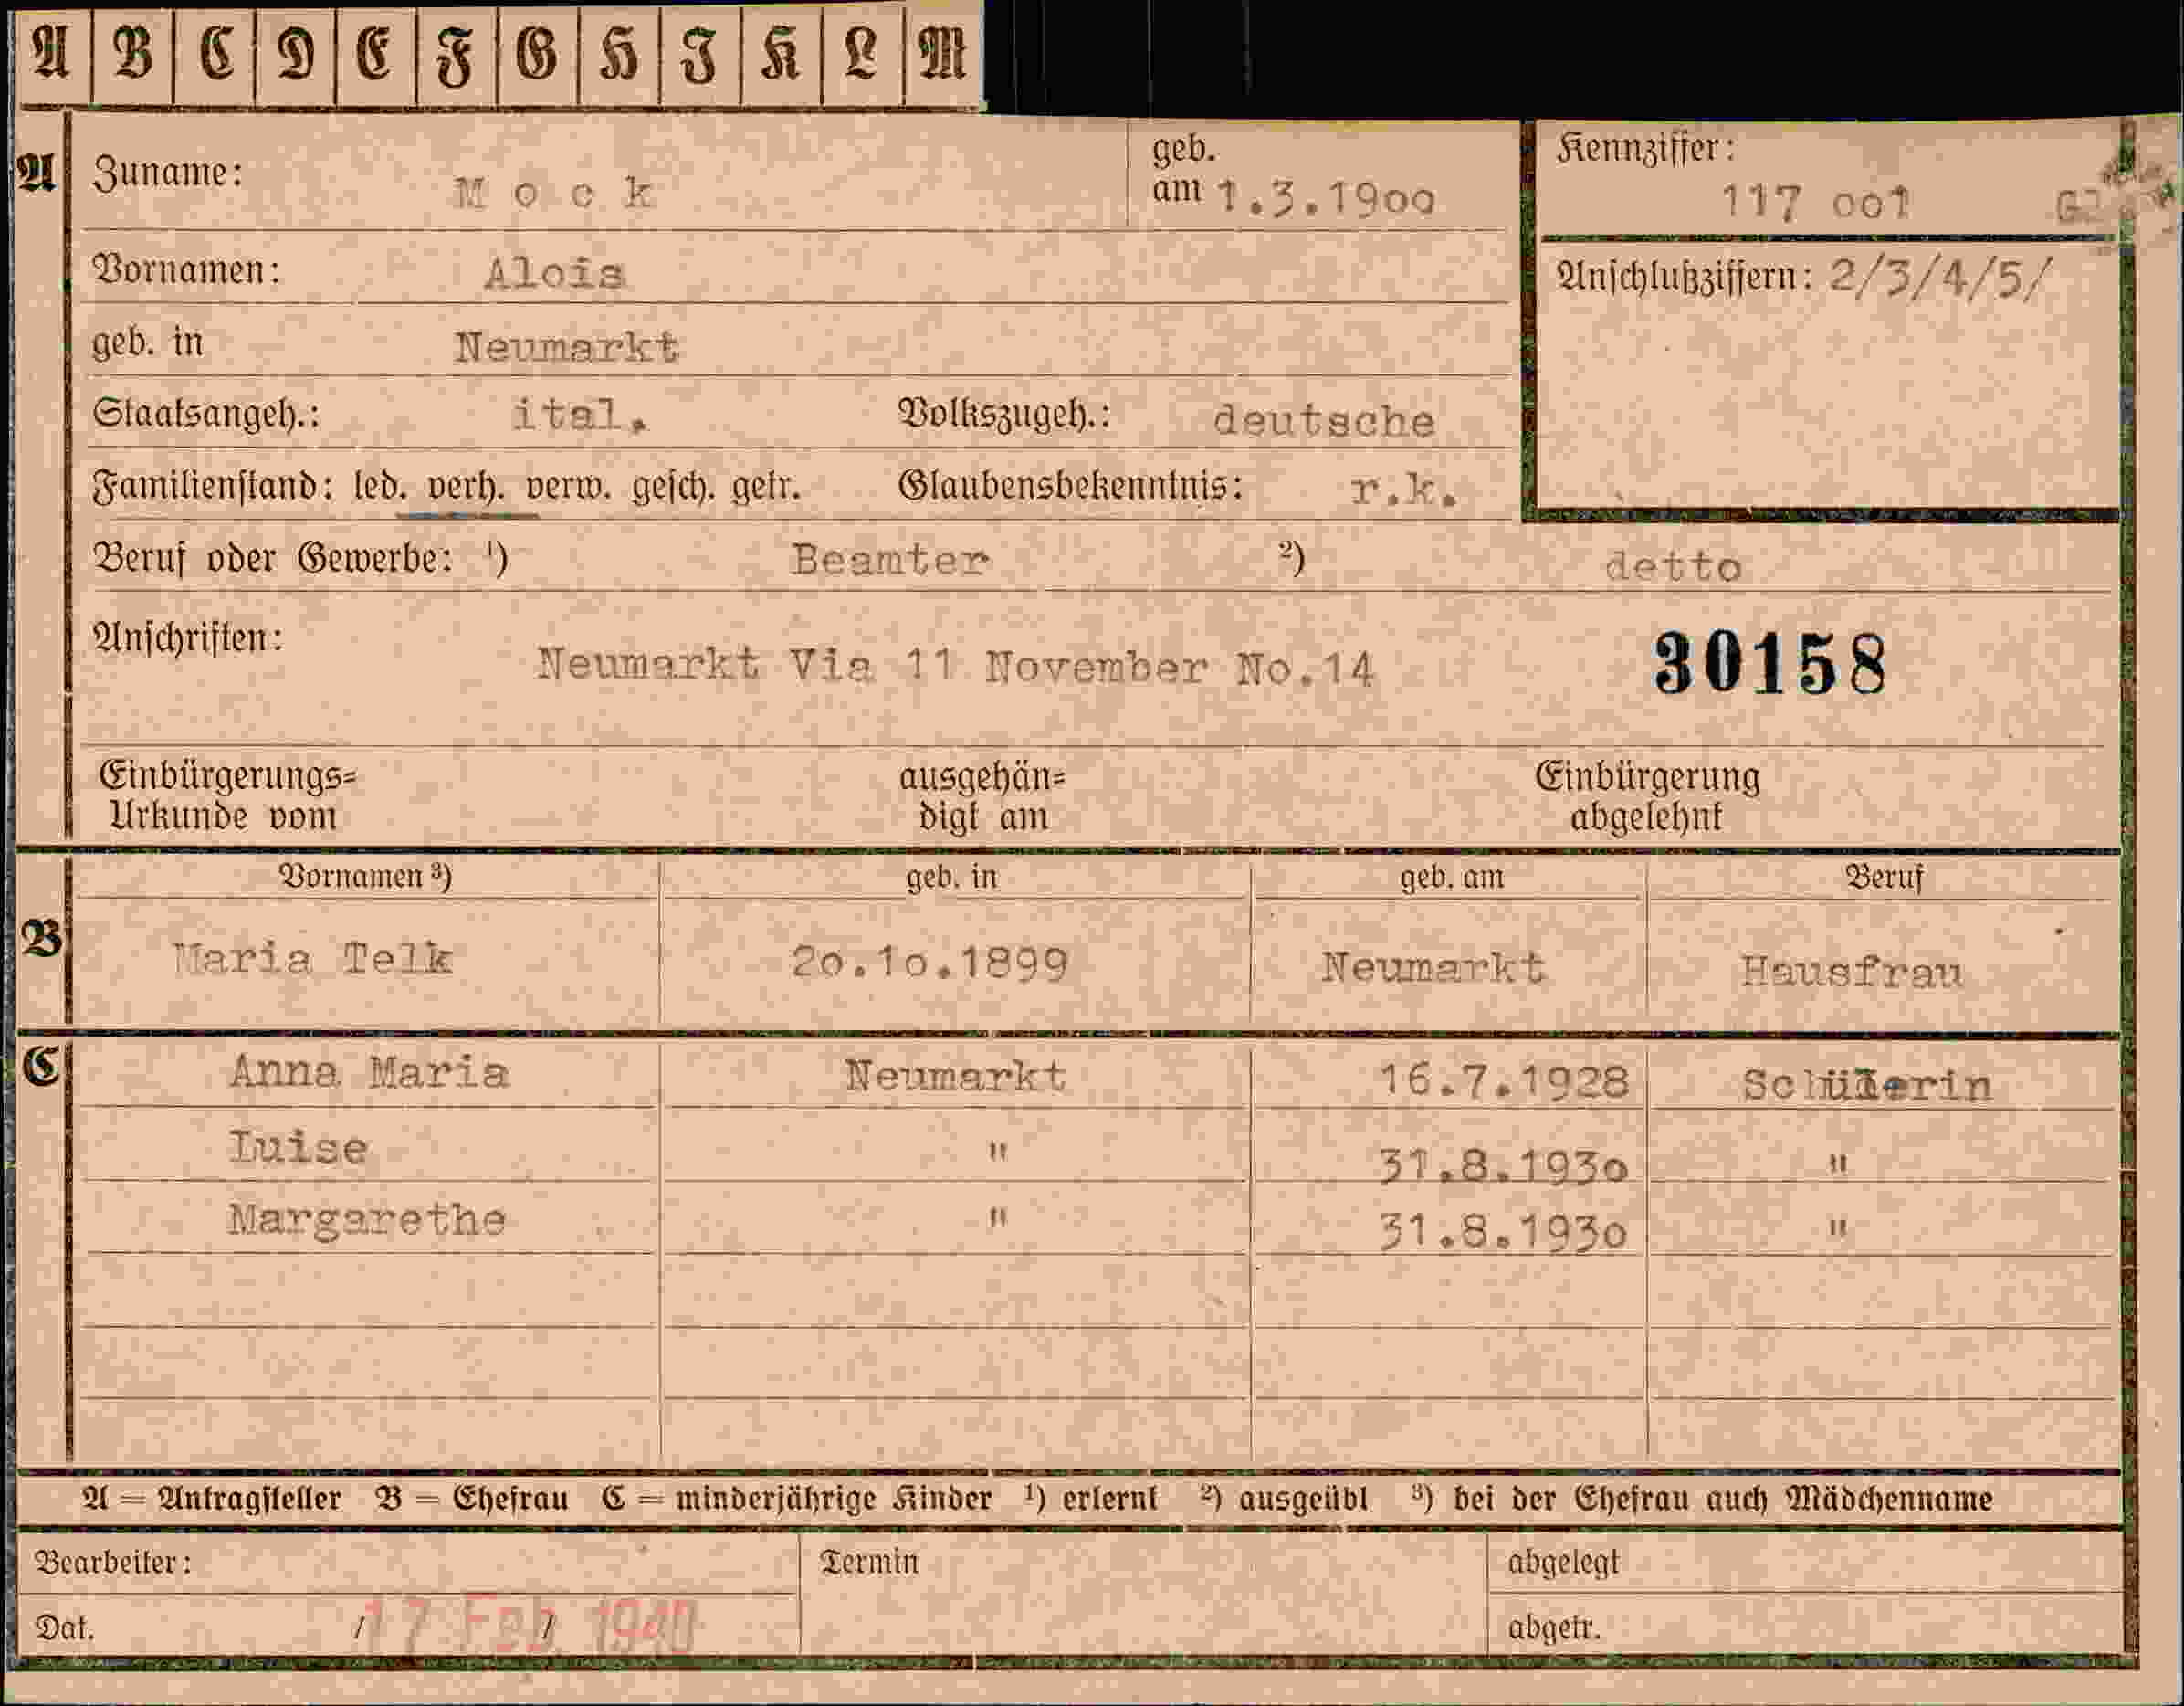 A B C D E F G H I K L M
A Zuname: Mock geb. am 1.3.1900 Kennziffer: 117 001
Vornamen: Alois Anschlußziffern: 2/3/4/5/
geb. in Neumarkt
Staatsangeh.: ital. Volkszugeh.: deutsche
Familienstand: led. verh. verw. gesch. getr. Glaubensbekenntnis: r.k.
Beruf oder Gewerbe: ¹) Beamter ²) detto
Anschriften: Neumarkt Via 11 November No.14 30158
Einbürgerungs= ausgehän= Einbürgerung
Urkunde vom digt am abgelehnt
Vornamen ³) geb. in geb. am Beruf
B Maria Telk 20.10.1899 Neumarkt Hausfrau
C Anna Maria Neumarkt 16.7.1928 Schülerin
Luise " 31.8.1930 "
Margarethe " 31.8.1930 "
A = Antragsteller B = Ehefrau C = minderjährige Kinder ¹) erlernt ²) ausgeübt ³) bei der Ehefrau auch Mädchenname
Bearbeiter: Termin abgelegt
Dat. / 17 Feb. / 1940 abgetr.